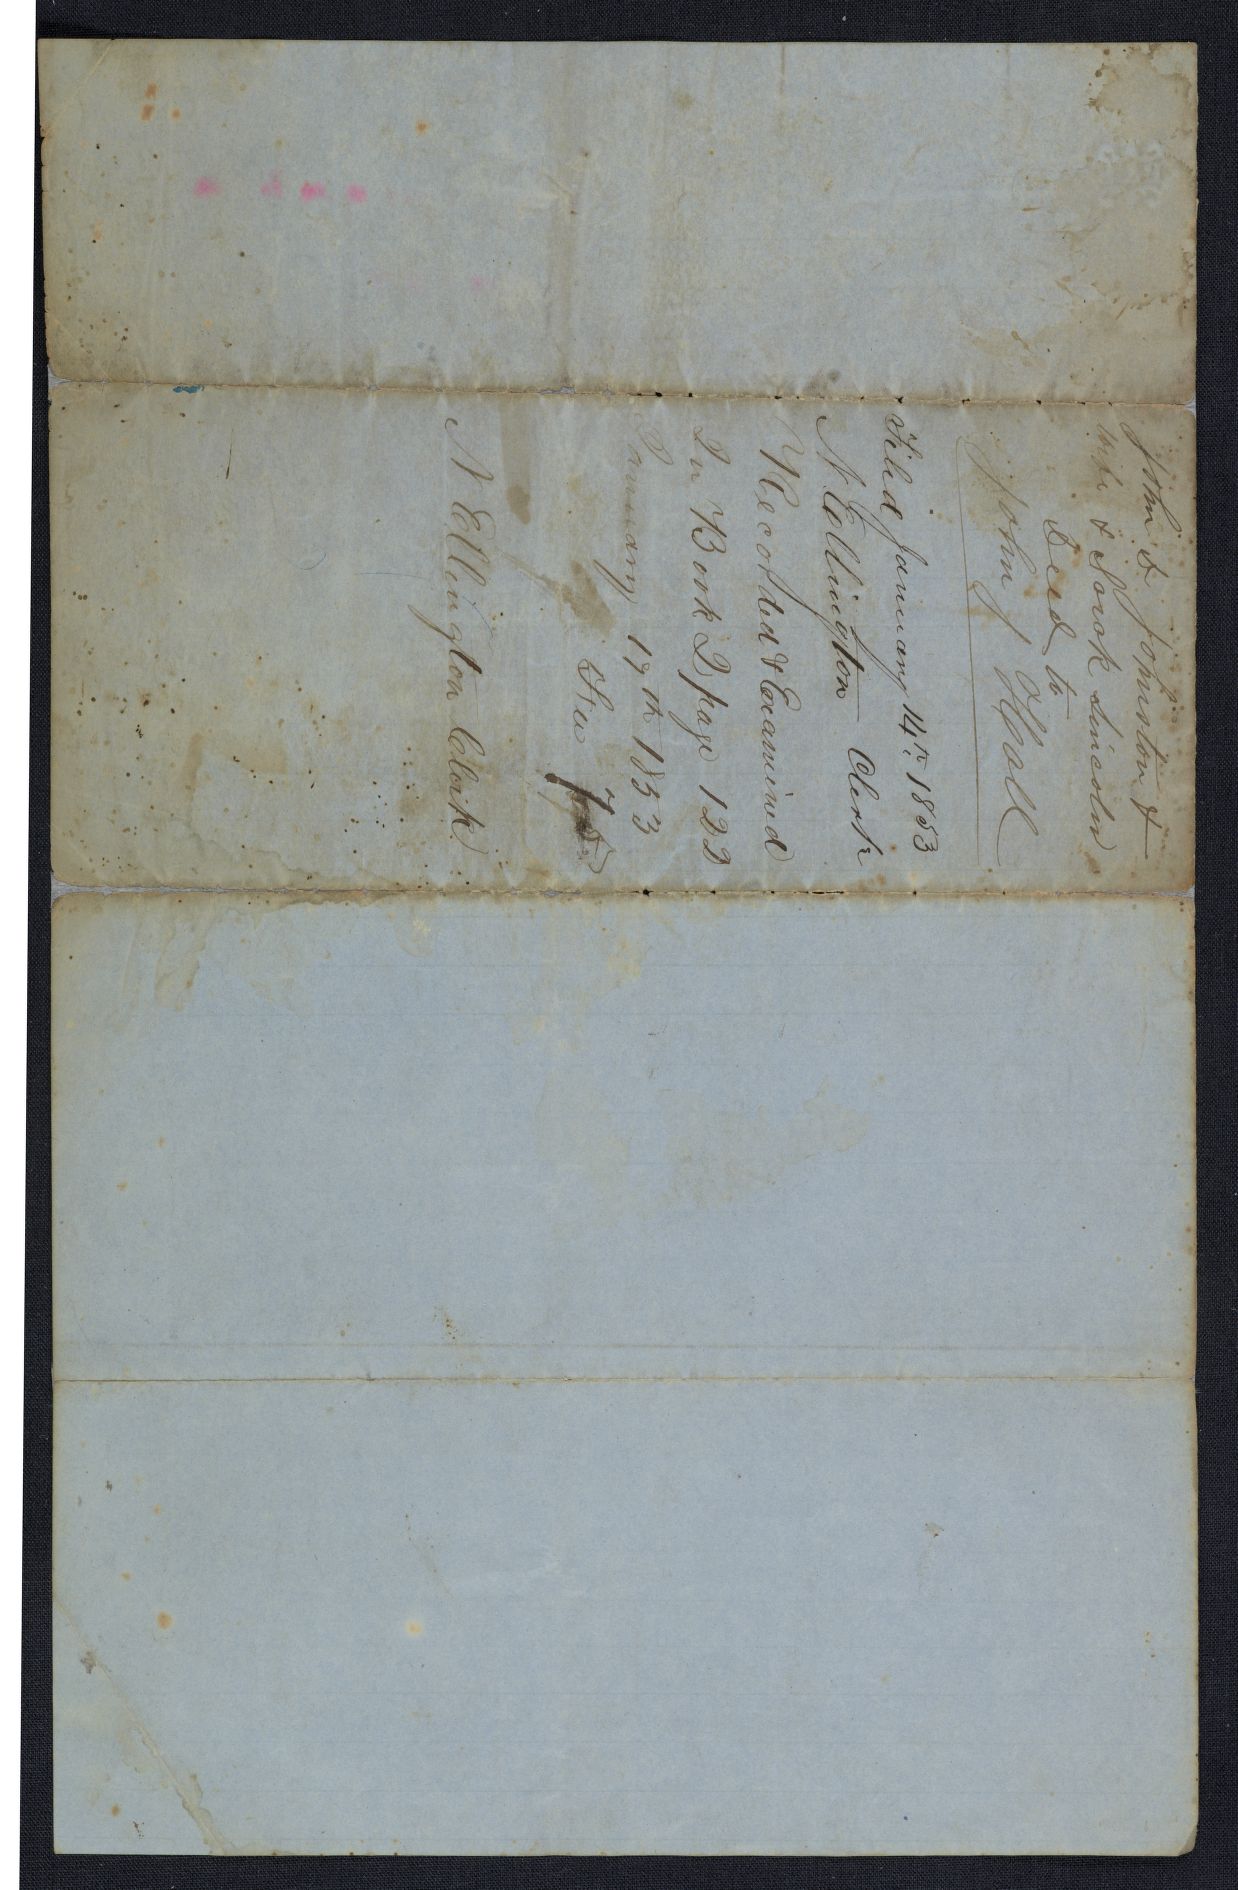 John D Johnston &
wife & Sarah Lincoln
Deed to
John J Hall
Filed January 14th 1853
N Ellington Clerk
Recorded & Examined
In Book D page 122
January 17th 1853
Fee
N Ellington Clerk